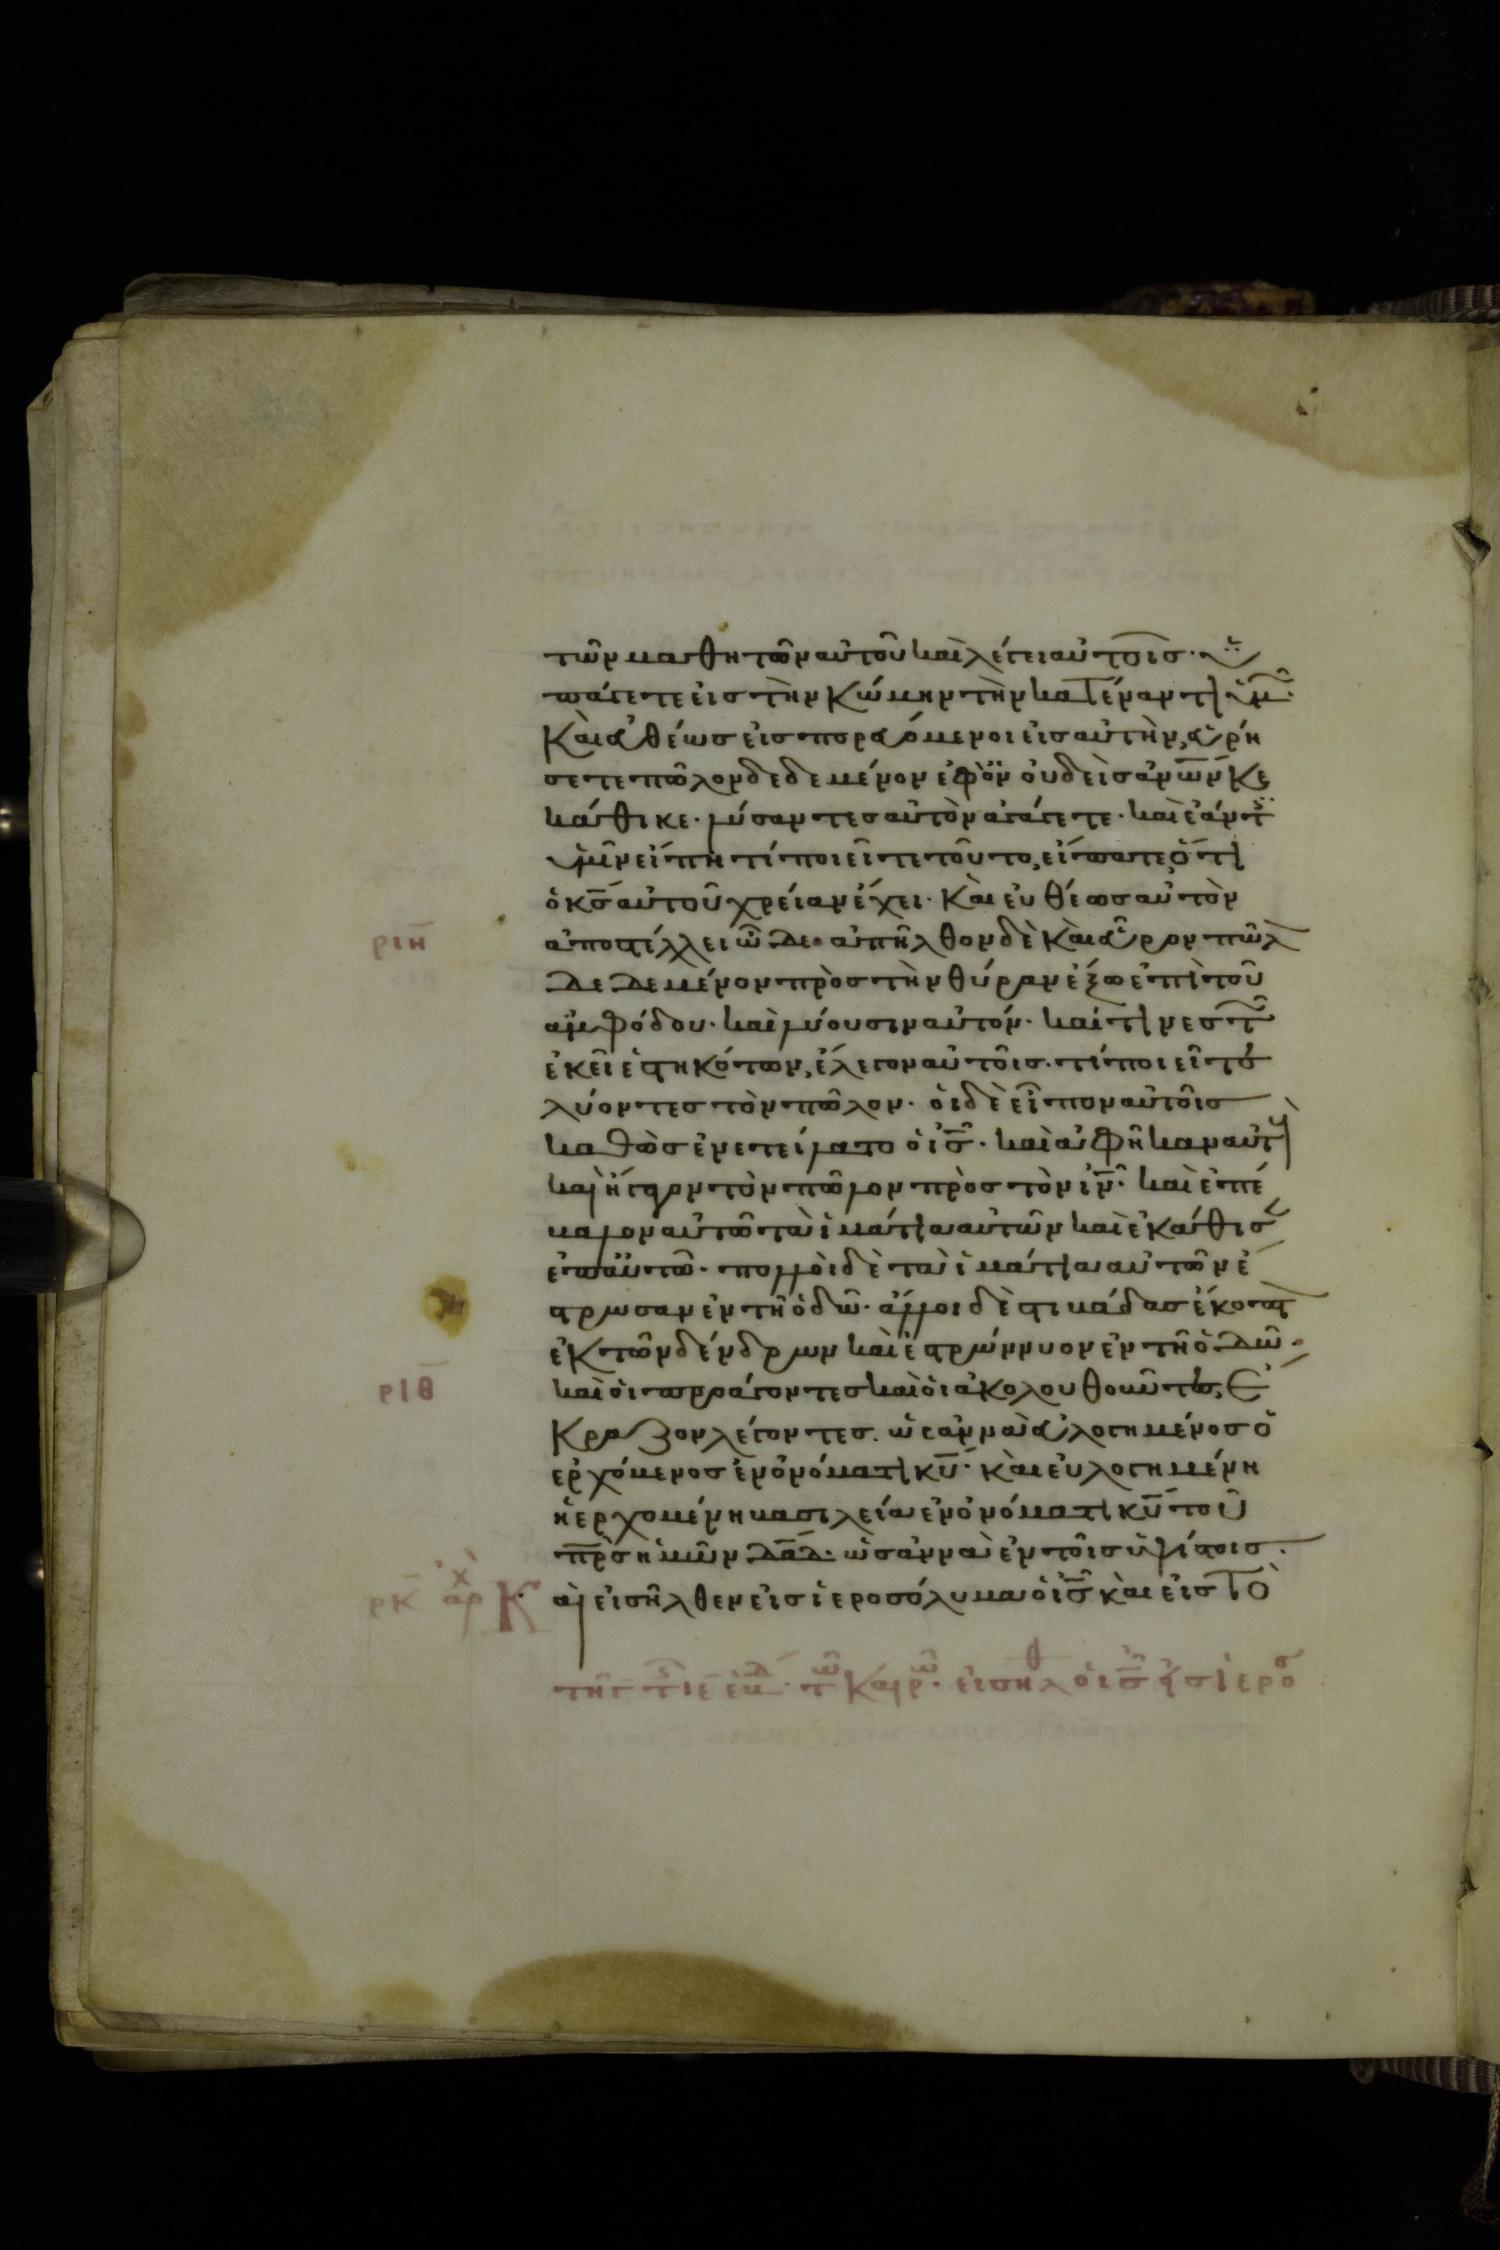 τῶν μαθητῶν αὐτοῦ καὶ λέγει αὐτοῖς· ὑ
πάγετε εἰς τὴν κώμην τὴν κατέναντι ὑμ̅·
καὶ εὐθέως εἰσπορευόμενοι εἰς αὐτὴν, εὑρή
σετε πῶλον δεδεμένον ἐφ ὃν οὐδεὶς ἀν̅ω̅ν̅ κε
κάθικε· λύσαντες αὐτὸν ἀγάγετε· καὶ ἐάν τ
ὑμῖν εἴπη τί ποιεῖτε τοῦτο, εἴπατε, ὅτι
ὁ κ̅ς̅ αὐτοῦ χρείαν ἔχει· καὶ εὐθέως αὐτὸν
ριη ἀποστέλλει ὧδε· ἀπῆλθον δὲ καὶ εὗρον πῶλ
δεδεμένον πρὸς τὴν θύραν ἔξω ἐπὶ τοῦ
ἀμφόδου· καὶ λύουσιν αὐτόν· καί τινες τῶ
ἐκεῖ ἑστηκότων, ἔλεγον αὐτοῖς· τί ποιεῖτε
λύοντες τὸν πῶλον· οἱ δὲ εἶπον αὐτοῖς
καθὼς ἐνετείλατο ὁ ι̅ς̅· καὶ ἀφῆκαν αὐτ
καὶ ἤγαγον τὸν πῶλον πρὸς τὸν ι̅ν̅· καὶ ἐπέ
βαλον αὐτῶ τὰ ἱμάτια αὐτῶν καὶ ἐκάθισ
ἐπ αὐτῶ· πολλοὶ δὲ τὰ ἱμάτια αὐτῶν ἔ
στρωσαν ἐν τῆ ὁδῶ· ἄλλοι δὲ στιβάδας ἔκοπτ
ἐκ τῶν δένδρων καὶ ἐστρώννυον ἐν τῆ ὁδῶ·
ριθ καὶ οἱ προάγοντες καὶ οἱ ἀκολουθοῦντες, ἔ
κραζον λέγοντες. ὡσαννὰ εὐλογημένος ὁ
ἐρχόμενος ἐν ὀνόματι κ̅υ̅· καὶ εὐλογημένη
ἡ ἐρχομένη βασιλεία ἐν ὀνόματι κ̅υ̅ τοῦ
π̅ρ̅ς ἡμῶν δ̅α̅δ̅· ὡσαννὰ ἐν τοῖς ὑψίστοις.
ρκ ἀρχ Καὶ εἰσῆλθεν εἰς ἱεροσόλυμα ὁ ι̅ς̅ καὶ εἰς τὸ
τῶ καιρῶ· εἰσῆλθ ὁ ι̅ς̅ εἰς ἱεροσ